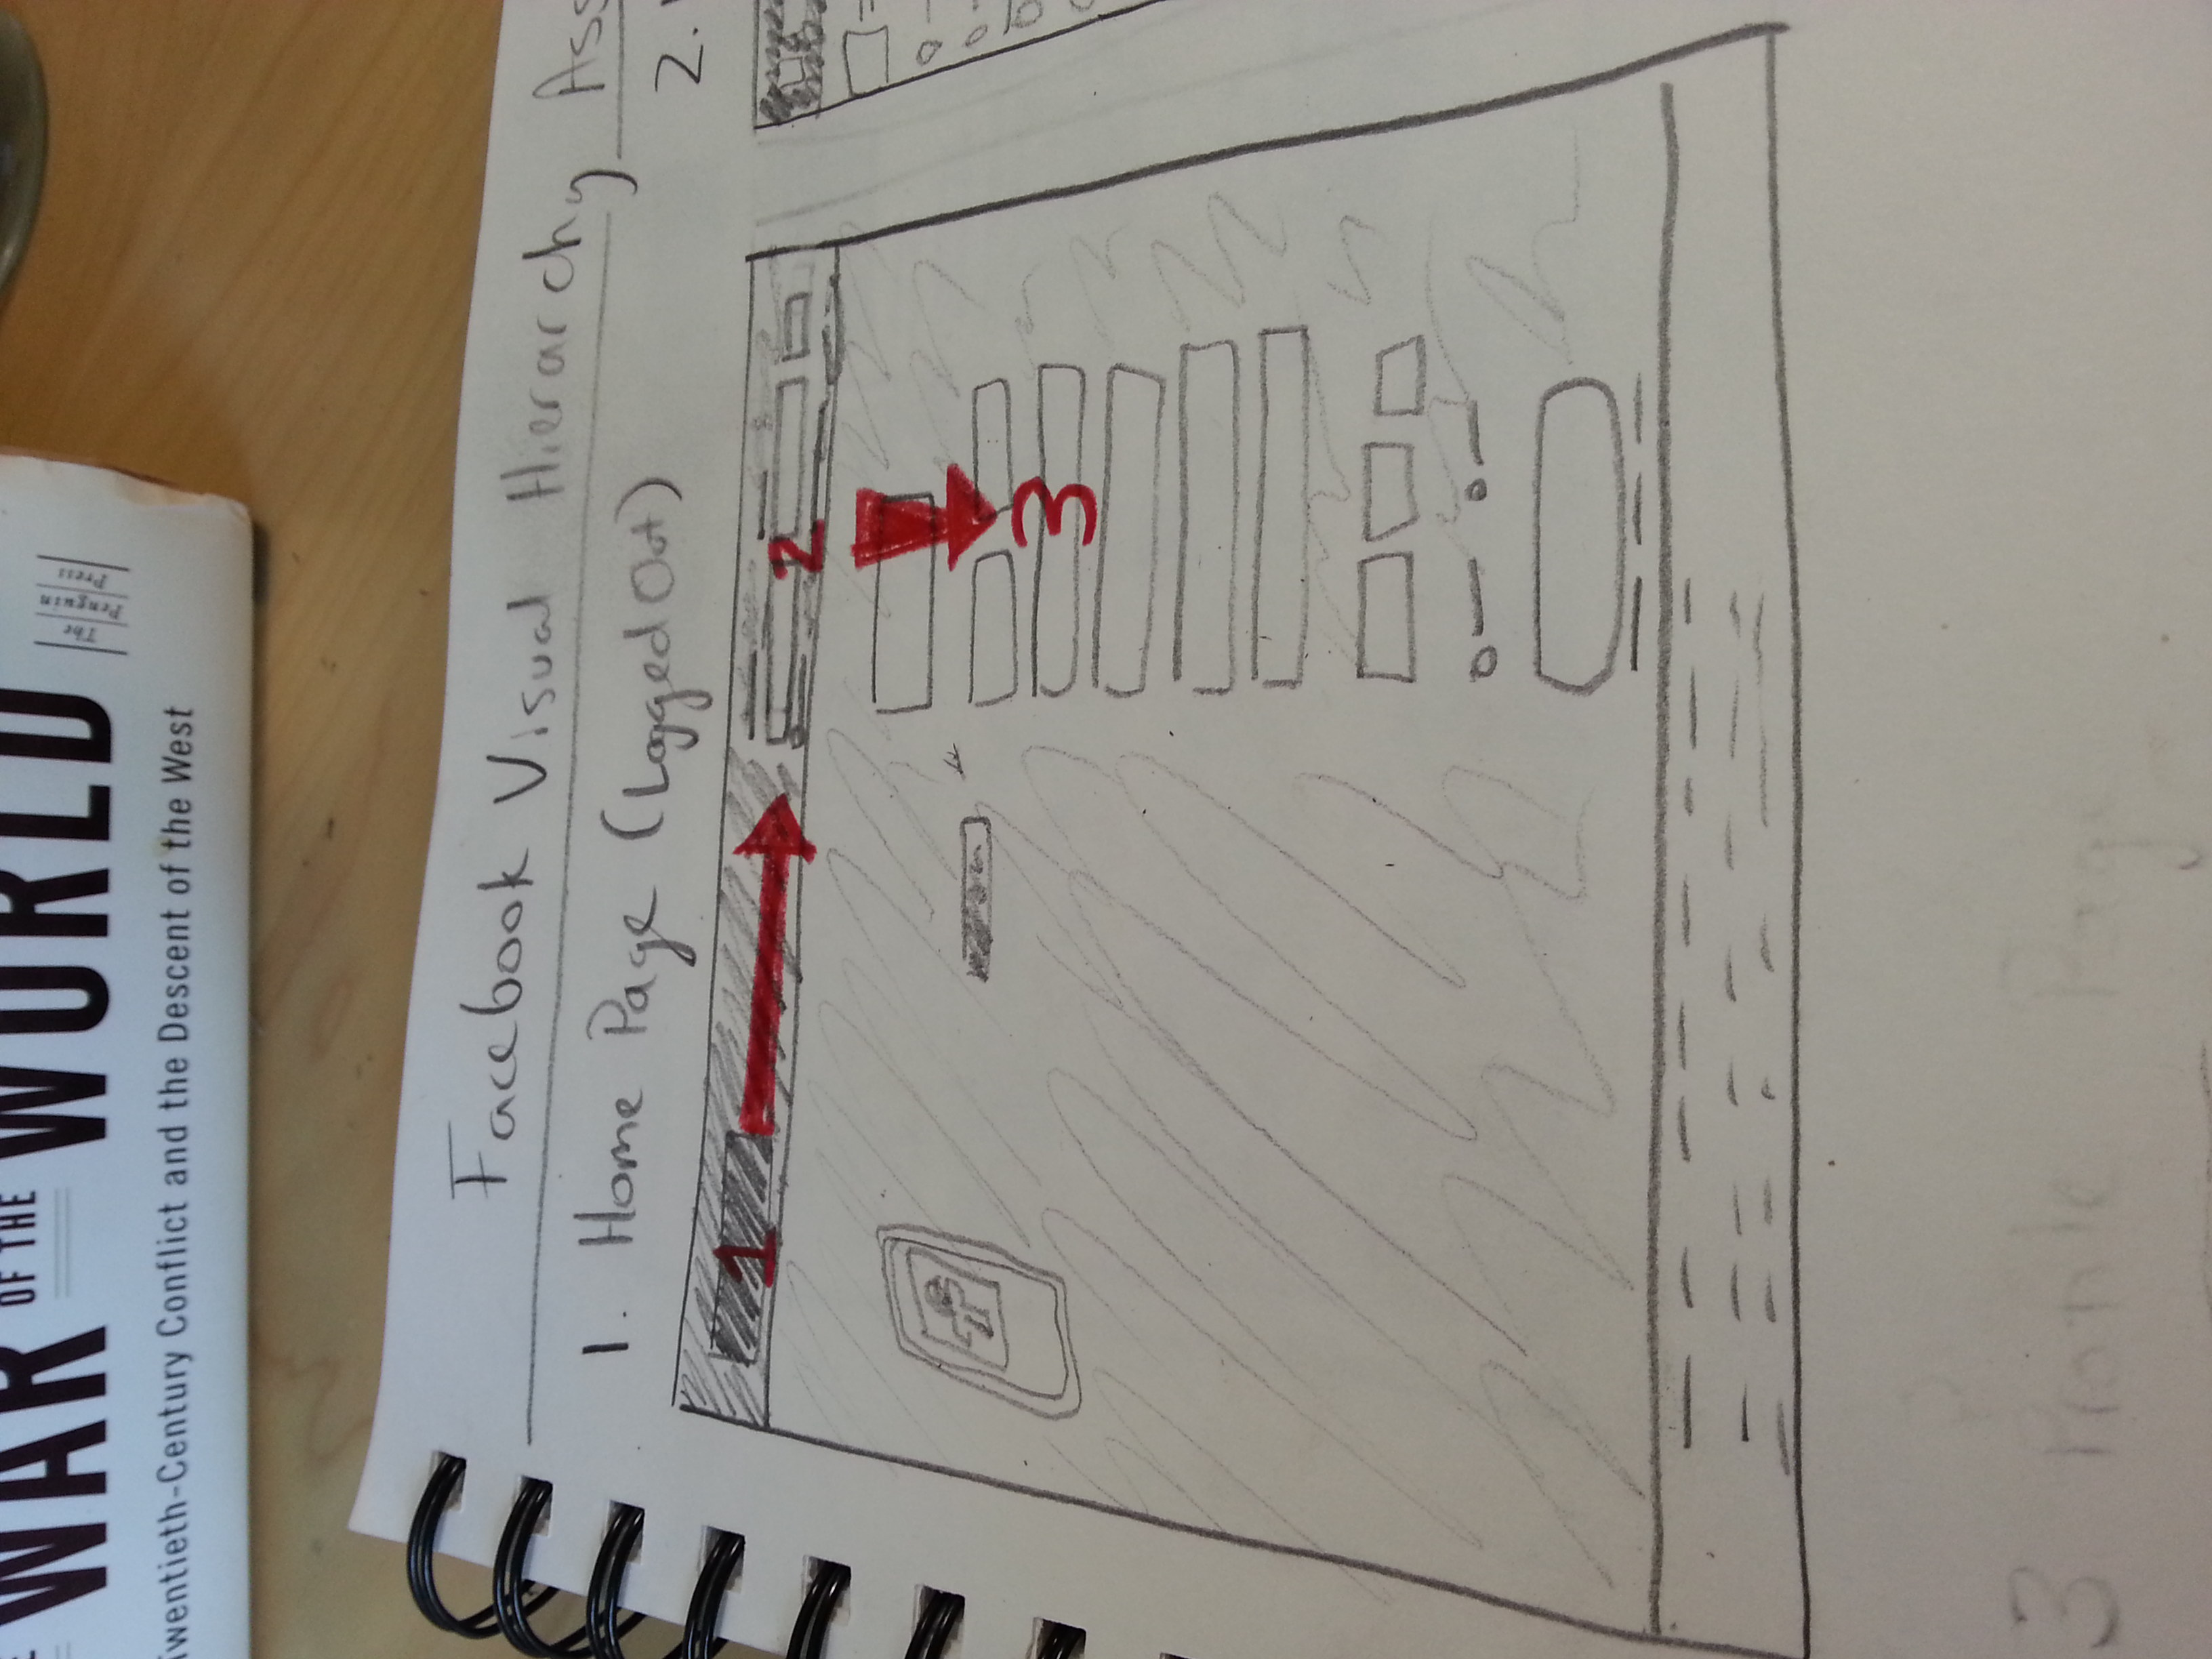 WAR OF THE WORLD
The
Penguin
Press
Twentieth-Century Conflict and the Descent of the West
Facebook Visual Hierarchy Ass
1. Home Page (Logged Out)
2.
1
2
3
3 Profile Page